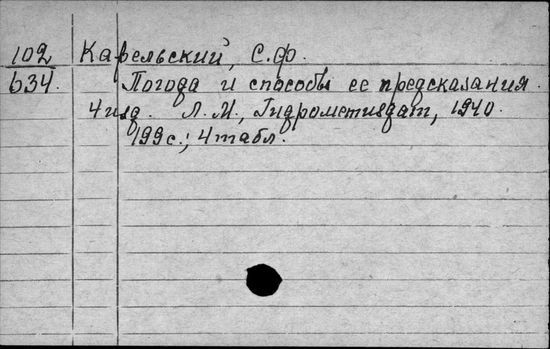 102 Карельский, С.Ф.
634. Погода и способы ее предсказания.
4 изд. Л.М., Гидрометиздат, 1940.
199 с.; 4 табл.